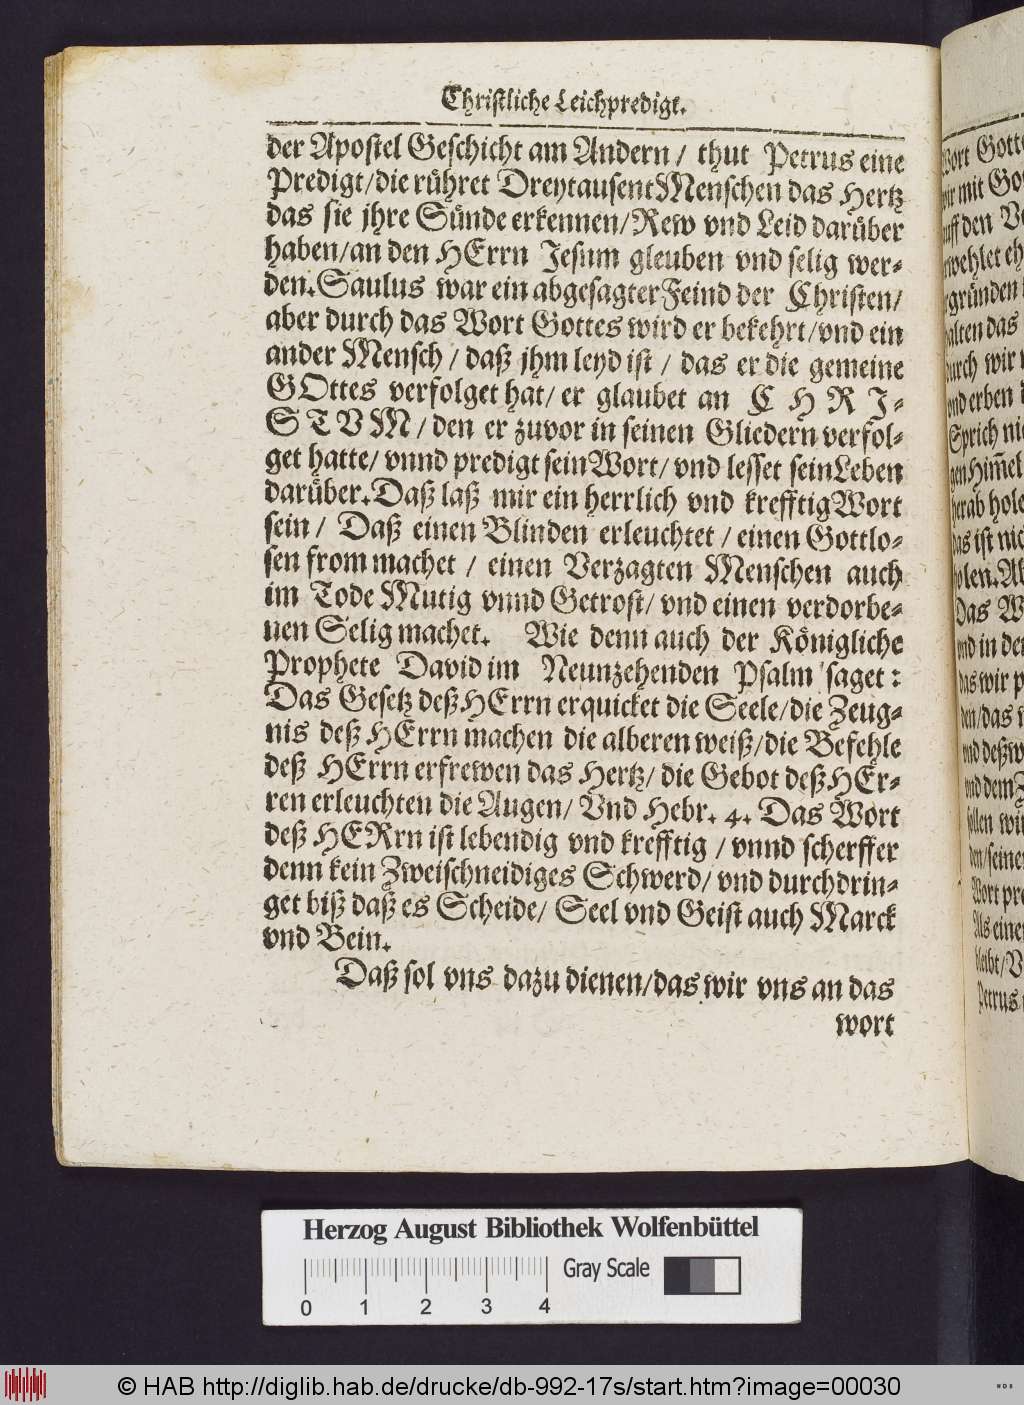 Christliche Leichpredigt.
der Apostel Geschicht am Andern / thut Petrus eine
Predigt/die rühret Dreytausent Menschen das Hertz
das sie jhre Sünde erkennen/Rew vnd Leid darüber
haben/an den HErrn Jesum gleuben vnd selig wer-
den. Saulus war ein abgesagter Feind der Christen/
aber durch das Wort Gottes wird er bekehrt/vnd ein
ander Mensch / daß jhm leyd ist / das er die gemeine
GOttes verfolget hat/ er glaubet an C H R I-
S T V M / den er zuvor in seinen Gliedern verfol-
get hatte/ vnnd predigt sein Wort/ vnd lesset sein Leben
darüber. Daß laß mir ein herrlich vnd krefftig Wort
sein / Daß einen Blinden erleuchtet / einen Gottlo-
sen from machet / einen Verzagten Menschen auch
im Tode Mutig vnnd Getrost/ vnd einen verdorbe-
nen Selig machet. Wie denn auch der Königliche
Prophete David im Neunzehenden Psalm saget:
Das Gesetz deß HErrn erquicket die Seele/die Zeug-
nis deß HErrn machen die alberen weiß/die Befehle
deß HErrn erfrewen das Hertz/ die Gebot deß HEr-
ren erleuchten die Augen/ Vnd Hebr. 4. Das Wort
deß HERrn ist lebendig vnd krefftig / vnnd scherffer
denn kein Zweischneidiges Schwerd/ vnd durchdrin-
get biß daß es Scheide/ Seel vnd Geist auch Marck
vnd Bein.
Daß sol vns dazu dienen/das wir vns an das
wort
Wort
mit
den
das
wir
vnd erben
Sprich
herab
das ist
Das
vnd in
das wir
den/das
vnd dem
sollen
Als
Petrus
Herzog August Bibliothek Wolfenbüttel
Gray Scale
0 1 2 3 4
© HAB http://diglib.hab.de/drucke/db-992-17s/start.htm?image=00030